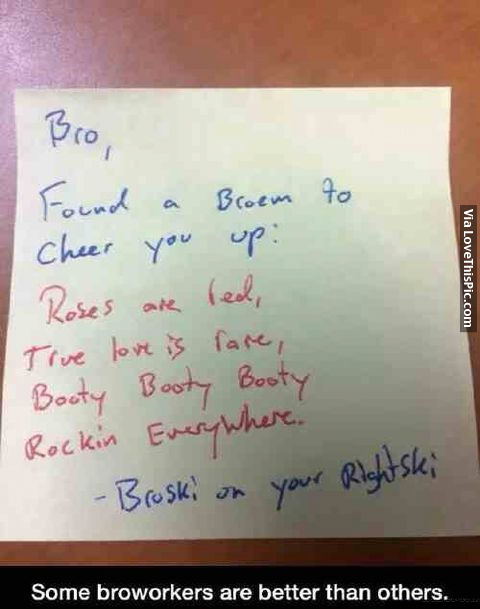 Bro,
Found a Broem to
Cheer you up:
Roses are red,
True love is rare,
Booty Booty Booty
Rockin Everywhere.
- Broski on your Rightski
Via LoveThisPic.com
Some broworkers are better than others.